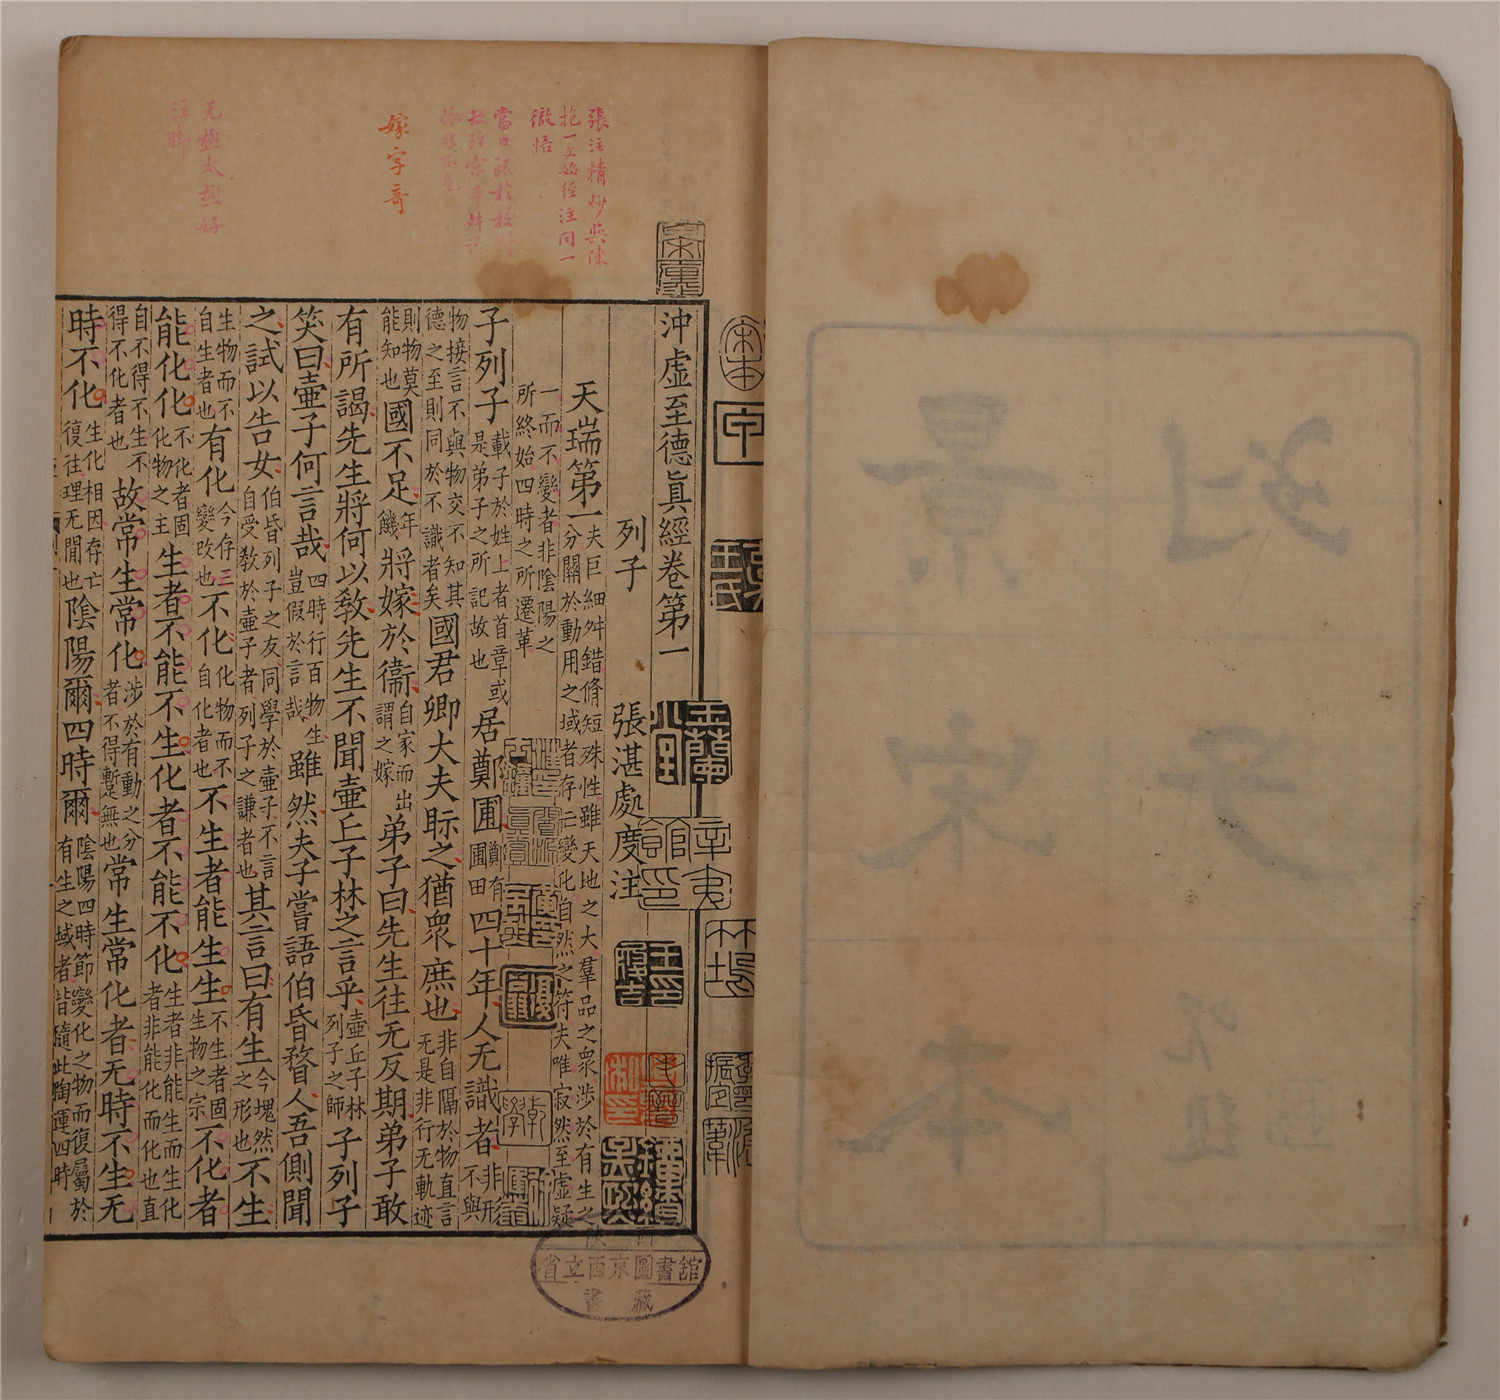 沖虛至德眞經卷第一
列子 張湛處度注
天瑞第一 夫巨細舛錯脩短殊性雖天地之大羣品之衆涉於有生之
分關於動用之域者存亡變化自然之符夫唯寂然至虛凝
一而不變者非陰陽之
所終始四時之所遷革
子列子 載子於姓上者首章或
是弟子之所記故也 居鄭圃 鄭有
圃田 四十年人无識者 非形
不與
物接言不與物交不知其
德之至則同於不識者矣 國君卿大夫眎之猶衆庶也 非自隔於物直言
无是非行无軌迹
則物莫
能知也 國不足 年
饑 將嫁於衞 自家而出
謂之嫁 弟子曰先生往无反期弟子敢
有所謁先生將何以敎先生不聞壷丘子林之言乎 壷丘子林
列子之師 子列子
笑曰壷子何言哉 四時行百物生
豈假於言哉 雖然夫子嘗語伯昏瞀人吾側聞
之試以告女 伯昏列子之友同學於壷子不言
自受敎於壷子者列子之謙者也 其言曰有生 今塊然
之形也 不生
生物而不
自生者也 有化 今存亡
變改也 不化 化物而不
自化者也 不生者能生生 不生者固
生物之宗 不化者
能化化 不化者固
化物之主 生者不能不生化者不能不化 生者非能生而生化
者非能化而化也直
自不得不生不
得不化者也 故常生常化 涉於有動之分
者不得蹔無也 常生常化者无時不生无
時不化 生化相因存亡
復往理无閒也 陰陽爾四時爾 陰陽四時節變化之物而復屬於
有生之域者皆隨此陶運四時
張注精妙與陳
抱一
注同一
徹悟
嫁字奇
无極太極好
注脚
陝西
省立西京圖書館
書藏
列子
景宋本